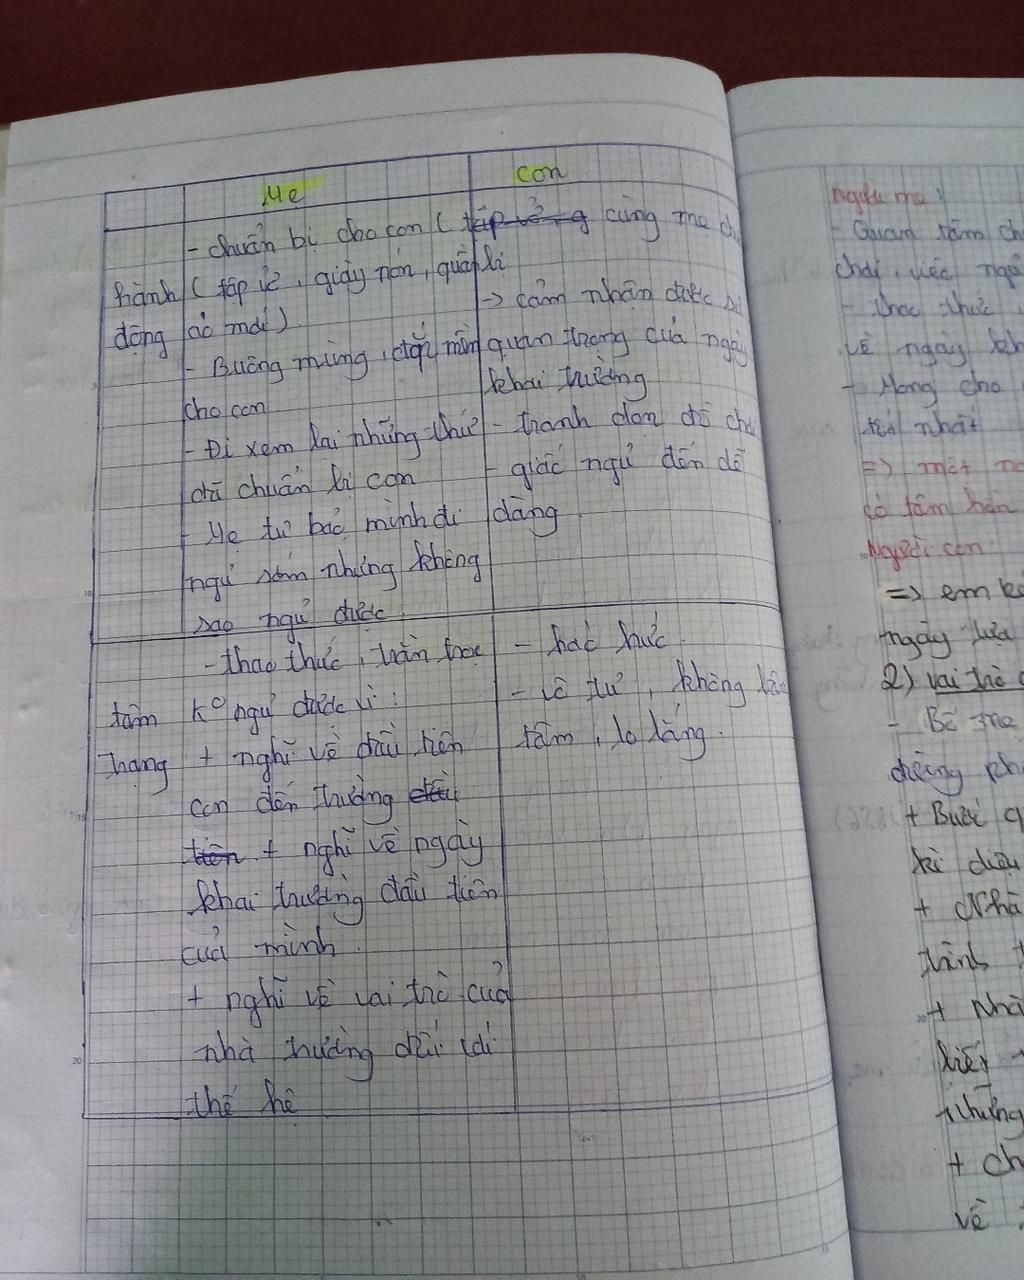 Mẹ
con
- chuẩn bị cho con (
cùng mẹ
hành
( tập vở, giày nón, quần
động
áo mới)
- Buông mùng, đắp mền
cho con
- Đi xem lại những thứ
đã chuẩn bị con
- Mẹ tự bảo mình đi
ngủ sớm nhưng không
sao ngủ được.
-> cảm nhận được
quan trọng của ngày
khai trường
- tranh dọn đồ
- giấc ngủ đến dễ
dàng
tâm
trạng
- thao thức, trằn trọc
k° ngủ được vì:
+ nghĩ về đầu tiên
con đến trường đầu
tiên + nghĩ về ngày
khai trường đầu tiên
của mình.
+ nghĩ về vai trò của
nhà trường đối với
thế hệ
- háo hức.
- vô tư, không
tâm, lo lắng.
Người mẹ:
- Quan tâm
chơi, việc
- thao thức
về ngày
- Mong cho
tốt nhất
=> một
có tâm hồn
Người con
=> em
ngày
2) vai trò
- Bố mẹ
+ Buổi
kì diệu
+ Nhà
+ Nhà
những
+
về